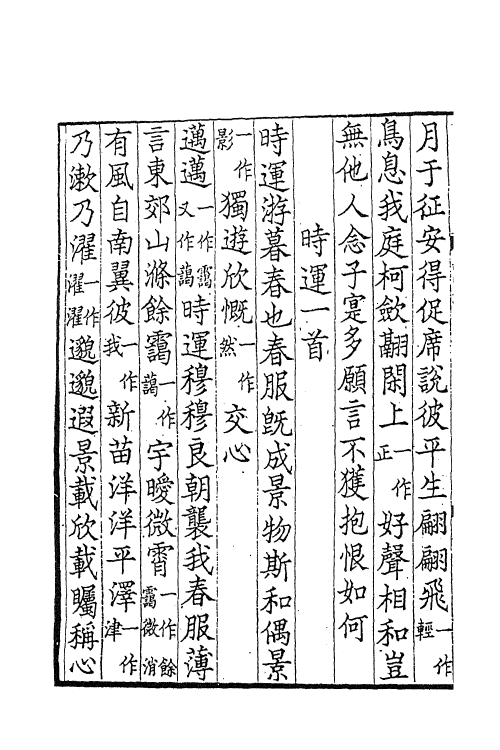 月于征安得促席說彼平生翩翩飛一作輕
鳥息我庭柯歛翮閑上一作正好聲相和豈
無他人念子寔多願言不獲抱恨如何
時運一首
時運游暮春也春服既成景物斯和偶景
一作影獨遊欣慨一作然交心
邁邁一作靄又作藹時運穆穆良朝襲我春服薄
言東郊山滌餘靄一作藹宇曖微霄一作餘靄微消
有風自南翼彼一作我新苗洋洋平澤一作津
乃漱乃濯一作濯濯邈邈遐景載欣載矚稱心